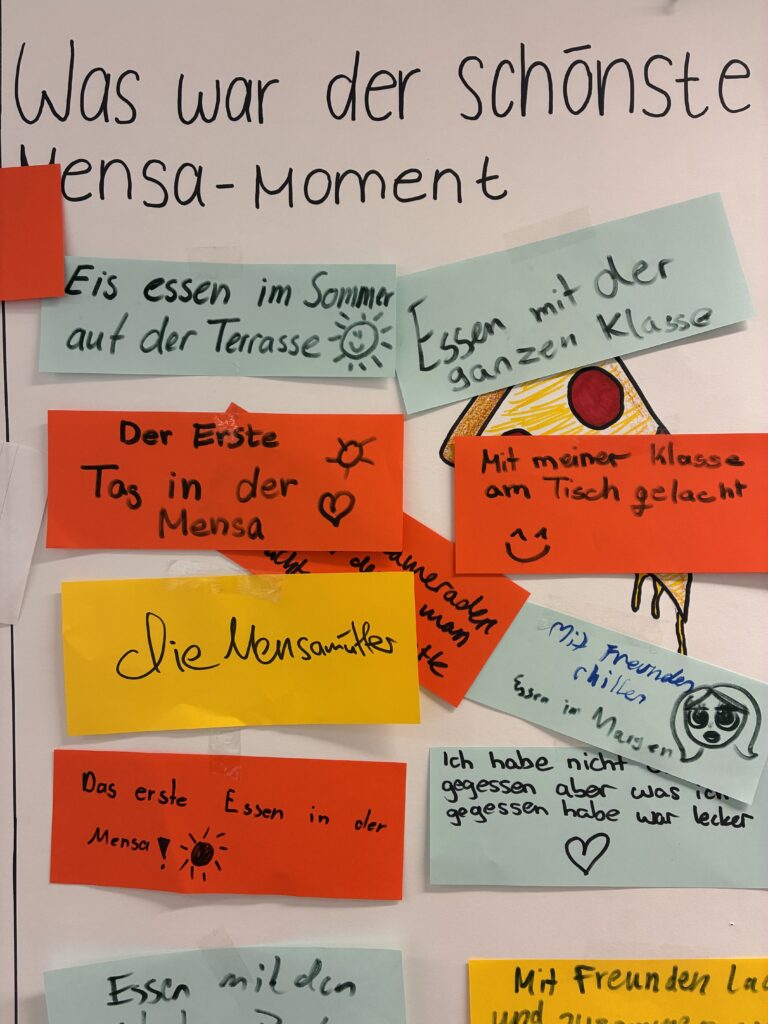 Was war der schönste
Mensa-Moment
Eis essen im Sommer
auf der Terrasse
Essen mit der
ganzen Klasse
Der Erste
Tag in der
Mensa
Mit meiner Klasse
am Tisch gelacht
ameraden
man
die Mensamütter
Mit Freunden
chillen
Essen im Magen
Das erste Essen in der
Mensa!
Ich habe nicht
gegessen aber was ich
gegessen habe war lecker
Essen mit den
Mit Freunden
und